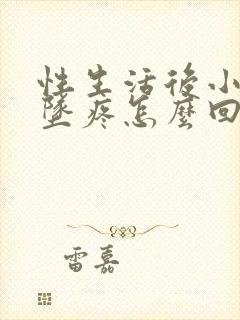 性生活後小
墜疼怎麼回
雷嘉